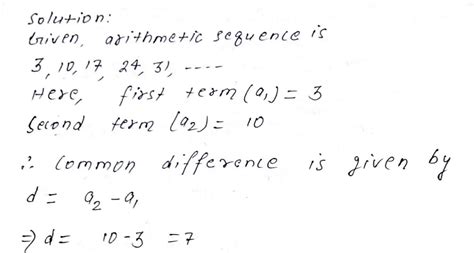 Solution:
Given, arithmetic sequence is
3, 10, 17, 24, 31, ----
Here, first term (a₁) = 3
Second term (a₂) = 10
∴ Common difference is given by
d = a₂ - a₁
⇒ d = 10 - 3 = 7